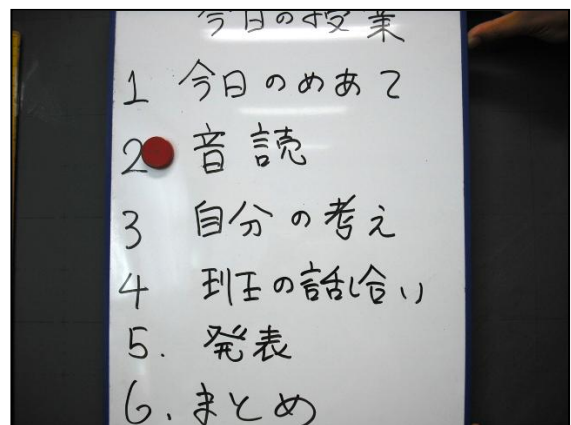 今日の授業
1 今日のめあて
2 音読
3 自分の考え
4 班の話し合い
5. 発表
6. まとめ